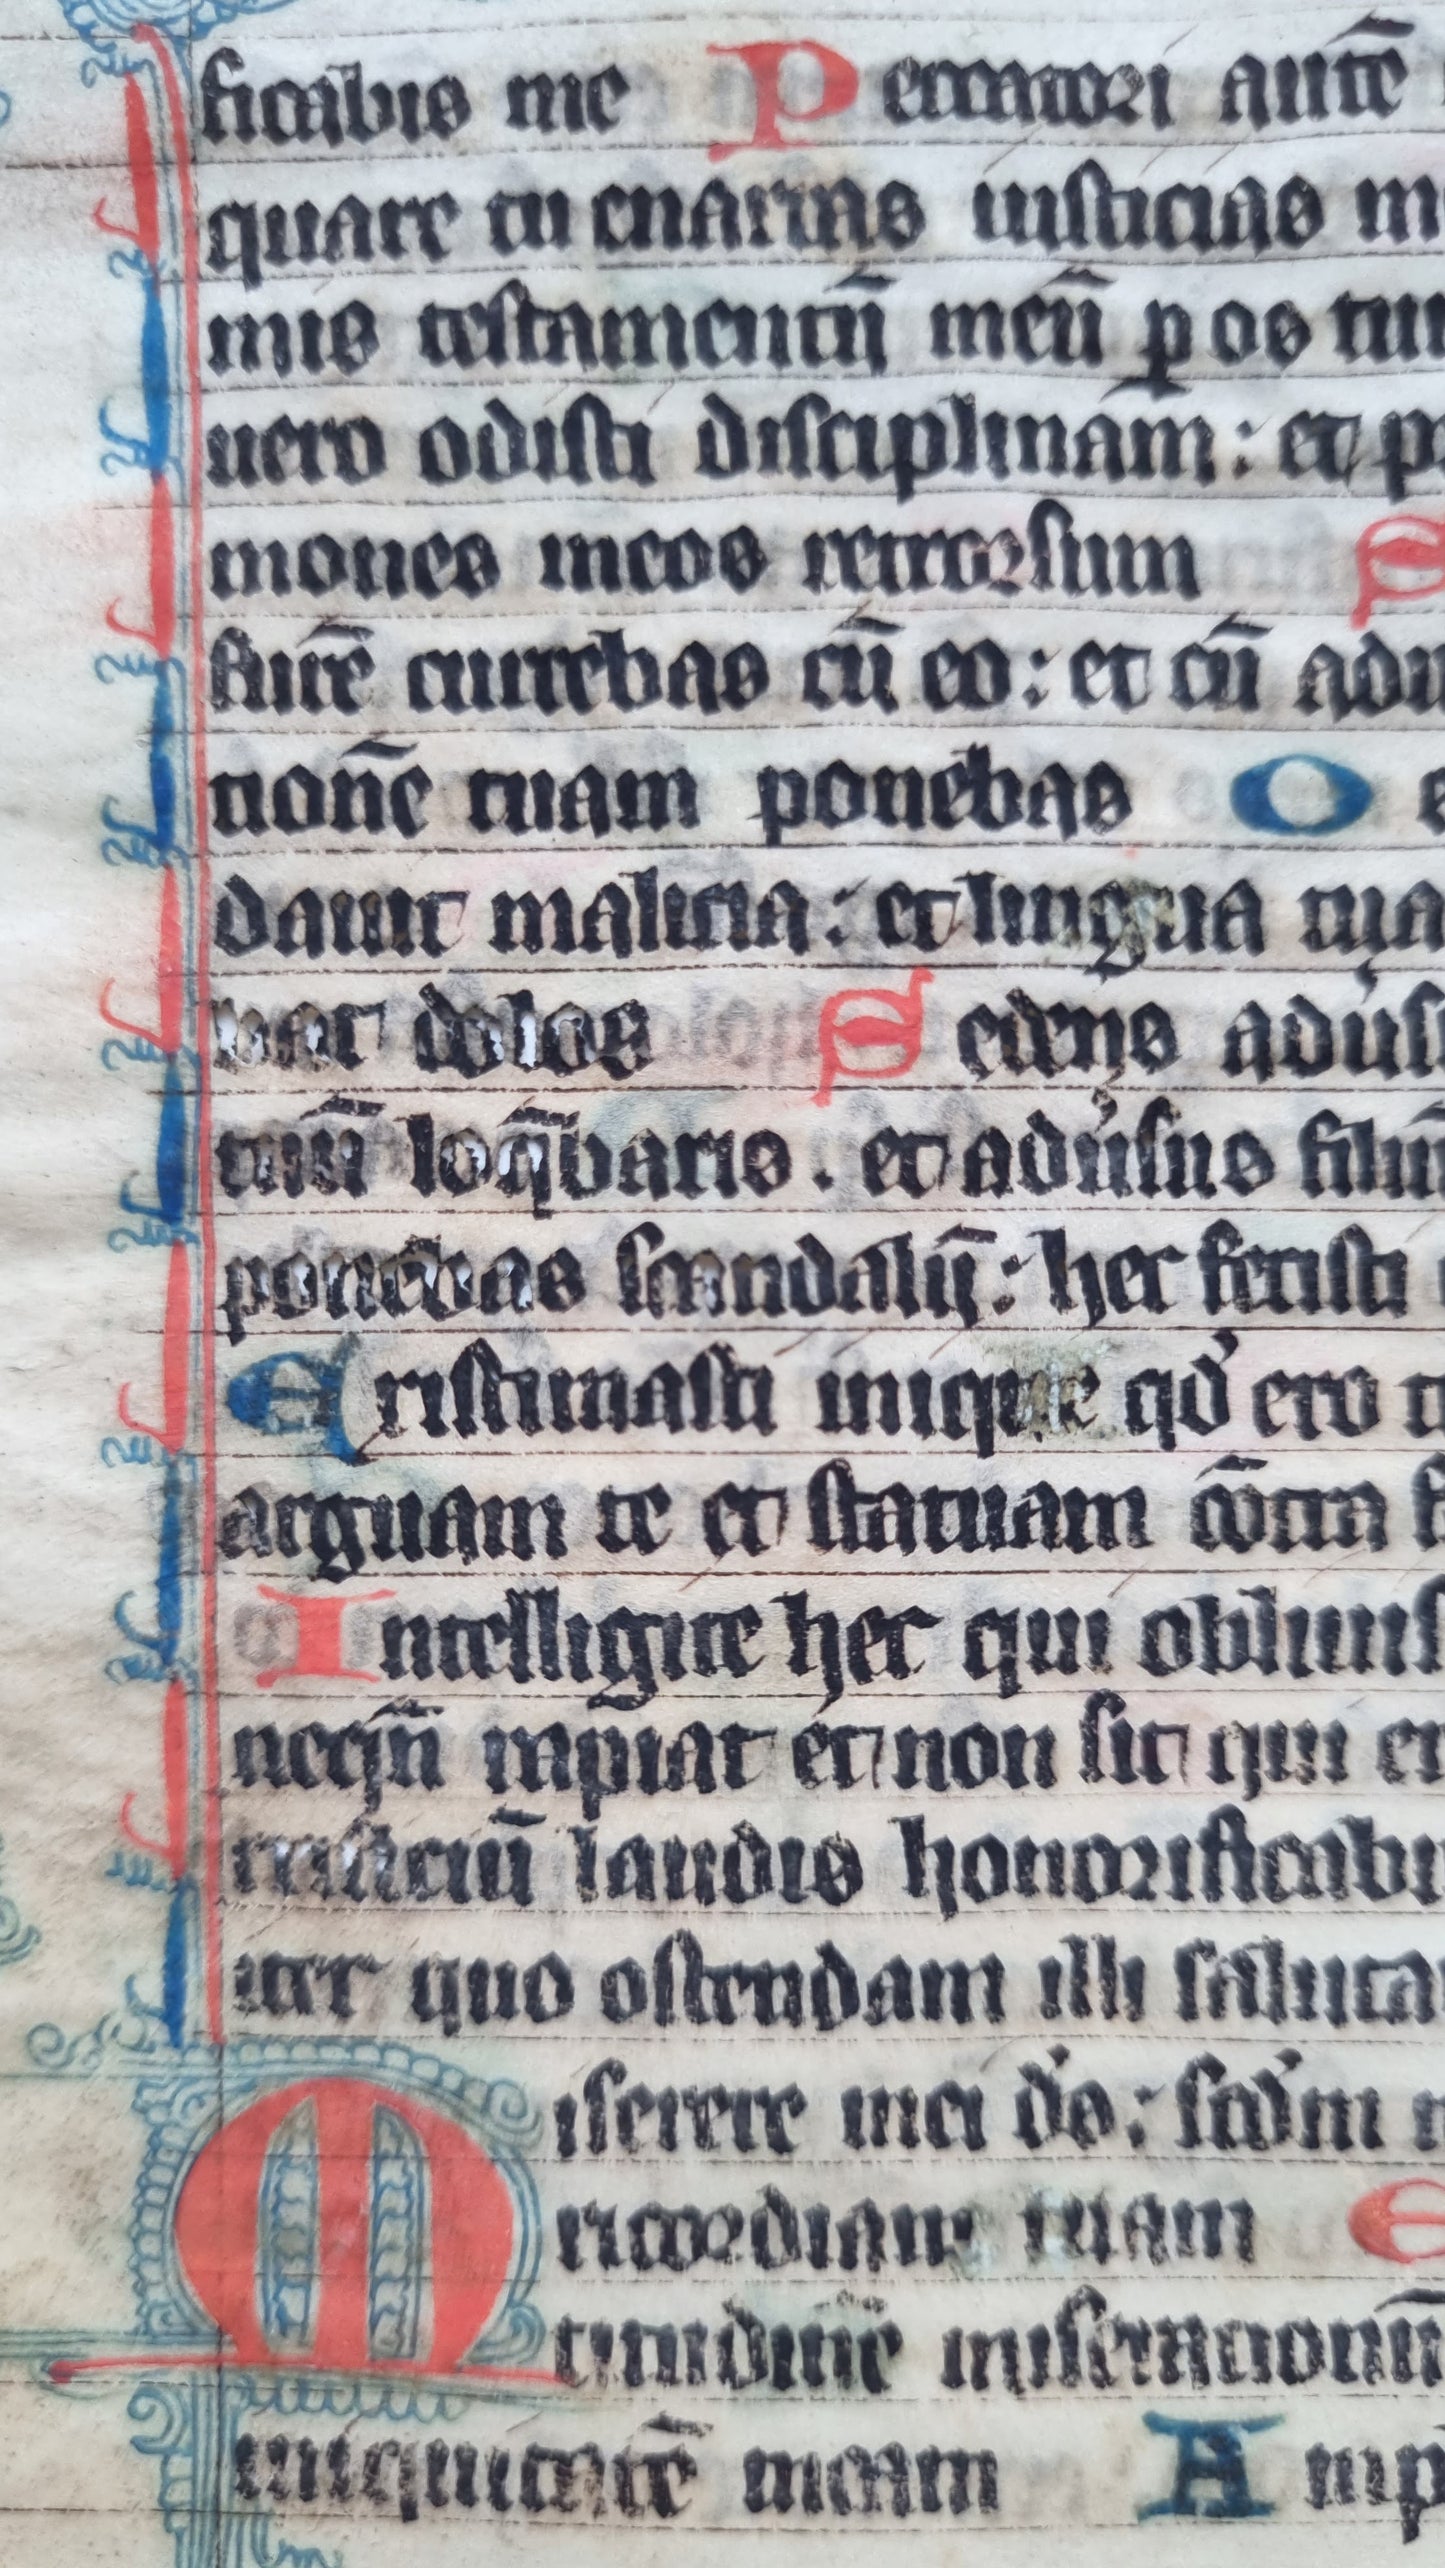 ficabis me Peccatori autē
quare tu enarras iusticias m
mis testamentū meū ꝑ os tuu
uero odisti disciplinam : et p
mones meos retrorsum S
furē currebas cū eo : et cū adu
tionē tuam ponebas O
dauit malicia : et lingua tua
nat dolos Sedens aduˀs
tuū loq̄baris . et aduˀsus filiū
ponebas scandalū : hec fecisti
Existimasti inique qd' ero t
arguam te et statuam cōtra f
Intelligite hec qui obliuis
neq̄n rapiat et non sit qui er
crificiū laudis honorificabi
iter quo ostendam illi saluta
Miserere mei d's : scd'm
ricordiam tuam E
titudinē miseracionū
iniquitatē meam Amp